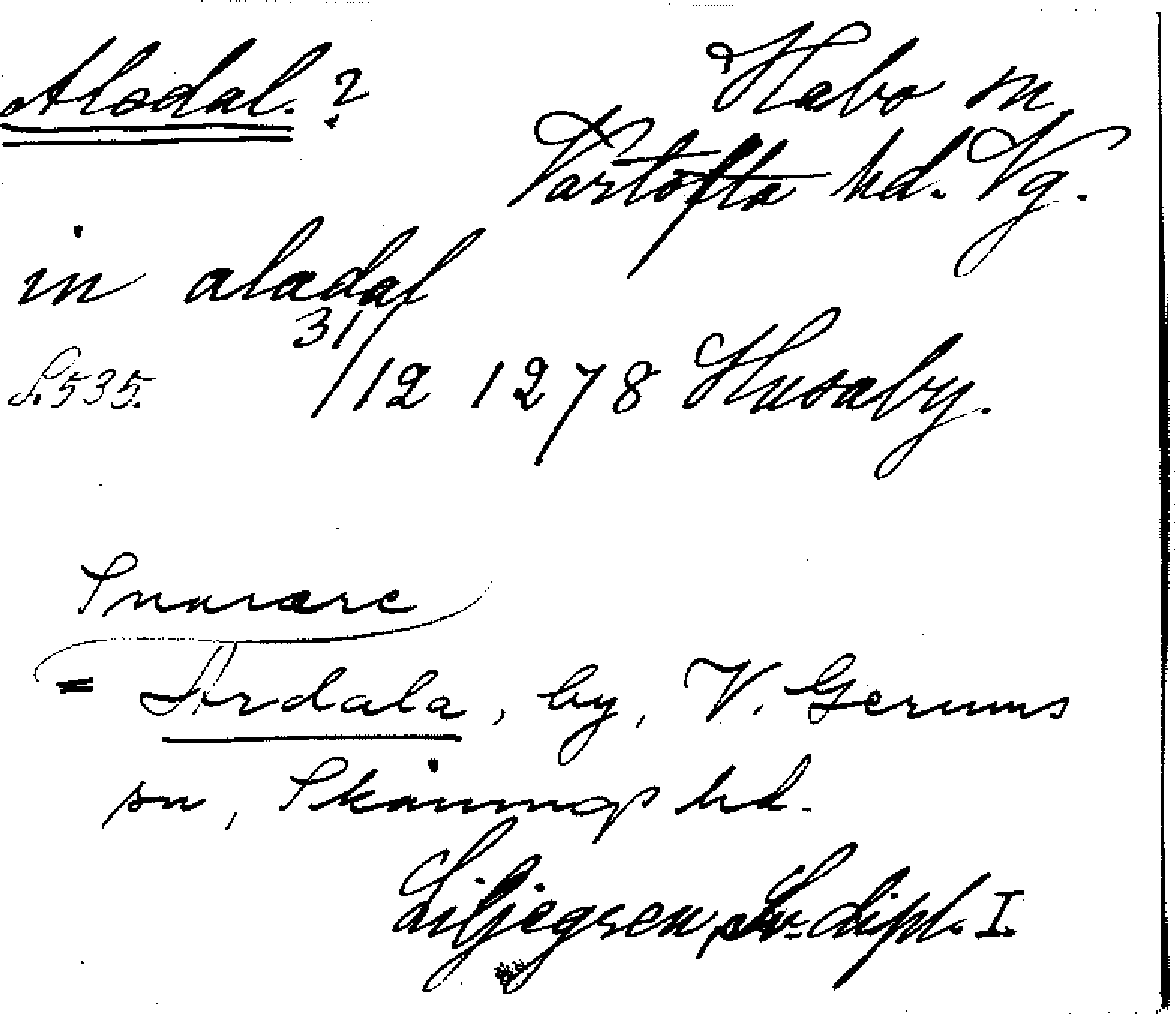 Alodal.? Habo sn,
Vartofta hd. Vg.
in aladal
S. 535. 31/12 1278 Husaby.
Snarare
= Årdala, by, V. Gerums
sn, Skånings hd.
Liljegren, Sv. dipl. I.